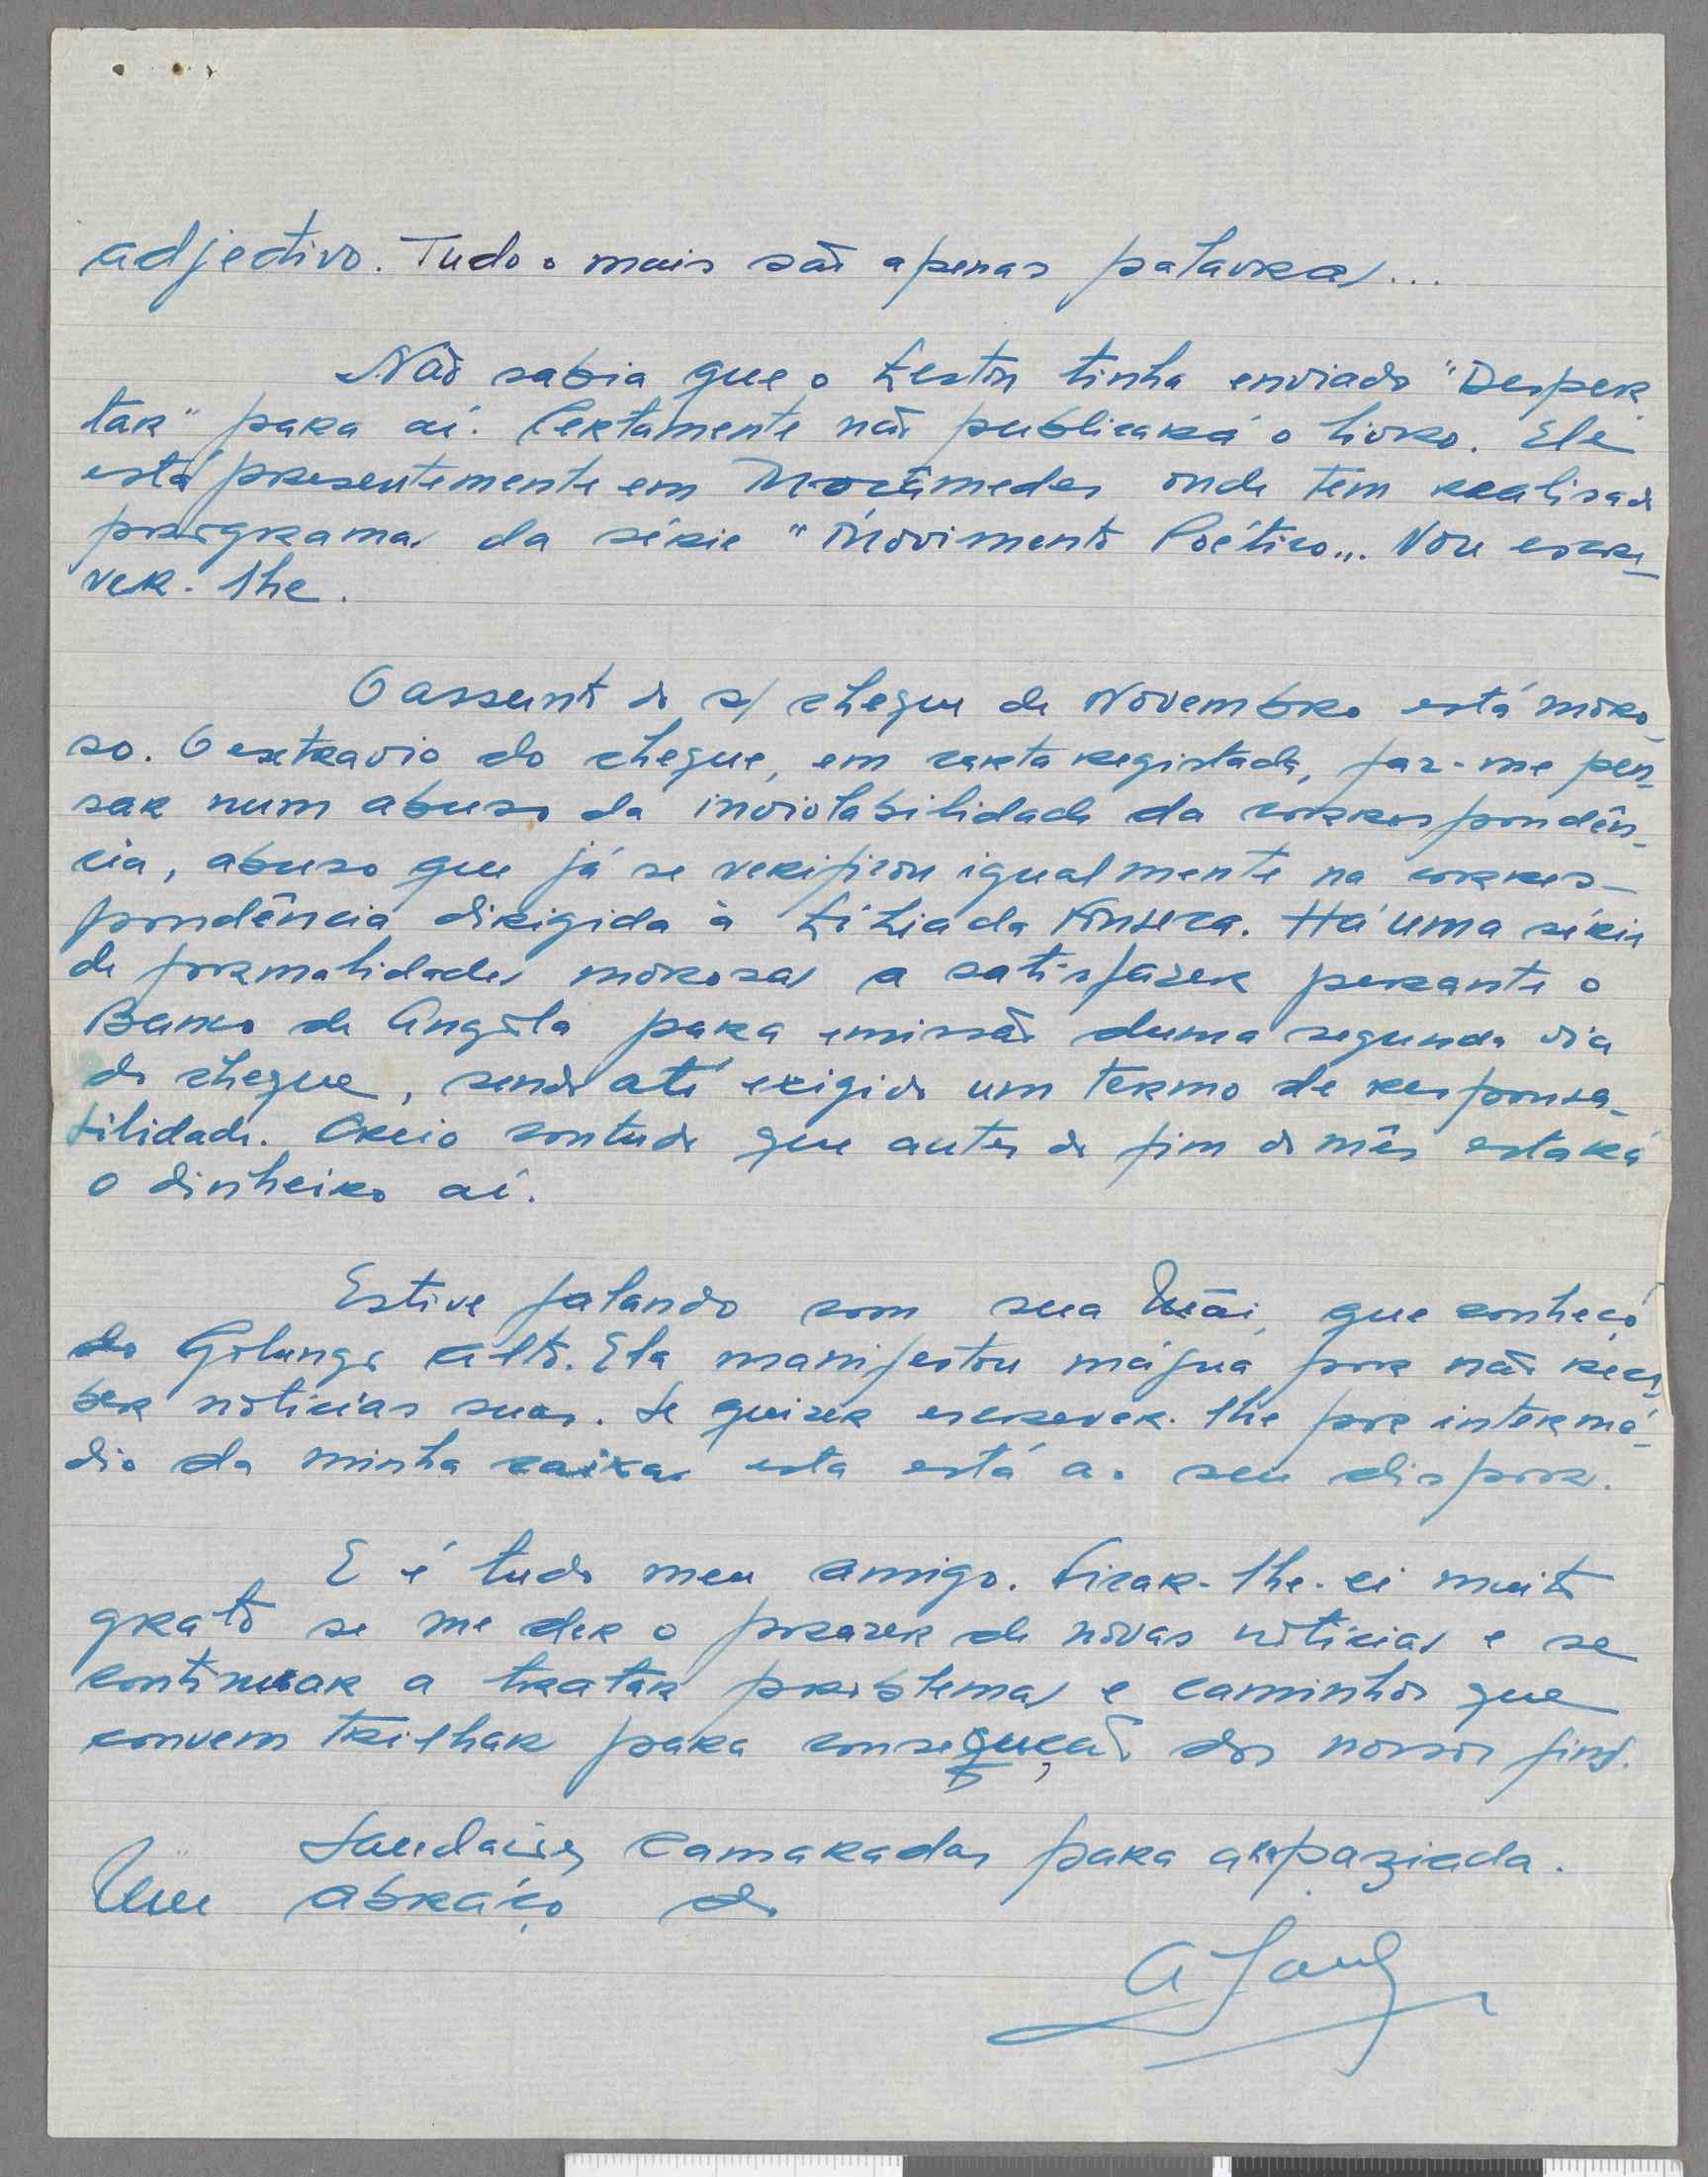 adjectivo. Tudo o mais são apenas palavras...
Não sabia que o Leston tinha enviado "Desper
tar" para aí. Certamente não publicará o livro. Ele
está presentemente em Moçâmedes onde tem realisado
programas da série "Movimento Poético". Vou escre-
ver-lhe.
O assunto do s/ cheque de Novembro está moro-
so. O extravio do cheque, em carta registada, faz-me pen-
sar num abuso da inviolabilidade da correspondên-
cia, abuso que já se verificou igualmente na corres-
pondência dirigida à Lília da Fonseca. Há uma série
de formalidades morosas a satisfazer perante o
Banco de Angola para emissão duma segunda via
do cheque, sendo até exigido um termo de responsa-
bilidade. Creio contudo que antes do fim do mês estará
o dinheiro aí.
Estive falando com sua Mãi, que conheço
do Golungo Alto. Ela manifestou mágua por não rece-
ber notícias suas. Se quiser escrever-lhe por intermé-
dio da minha caixa esta está ao seu dispor.
E é tudo meu amigo. Ficar-lhe-ei muito
grato se me der o prazer de novas notícias e se
continuar a tratar problemas e caminhos que
convem trilhar para consequção dos nossos fins.
Saudações camaradas para a rapaziada.
Um abraço do